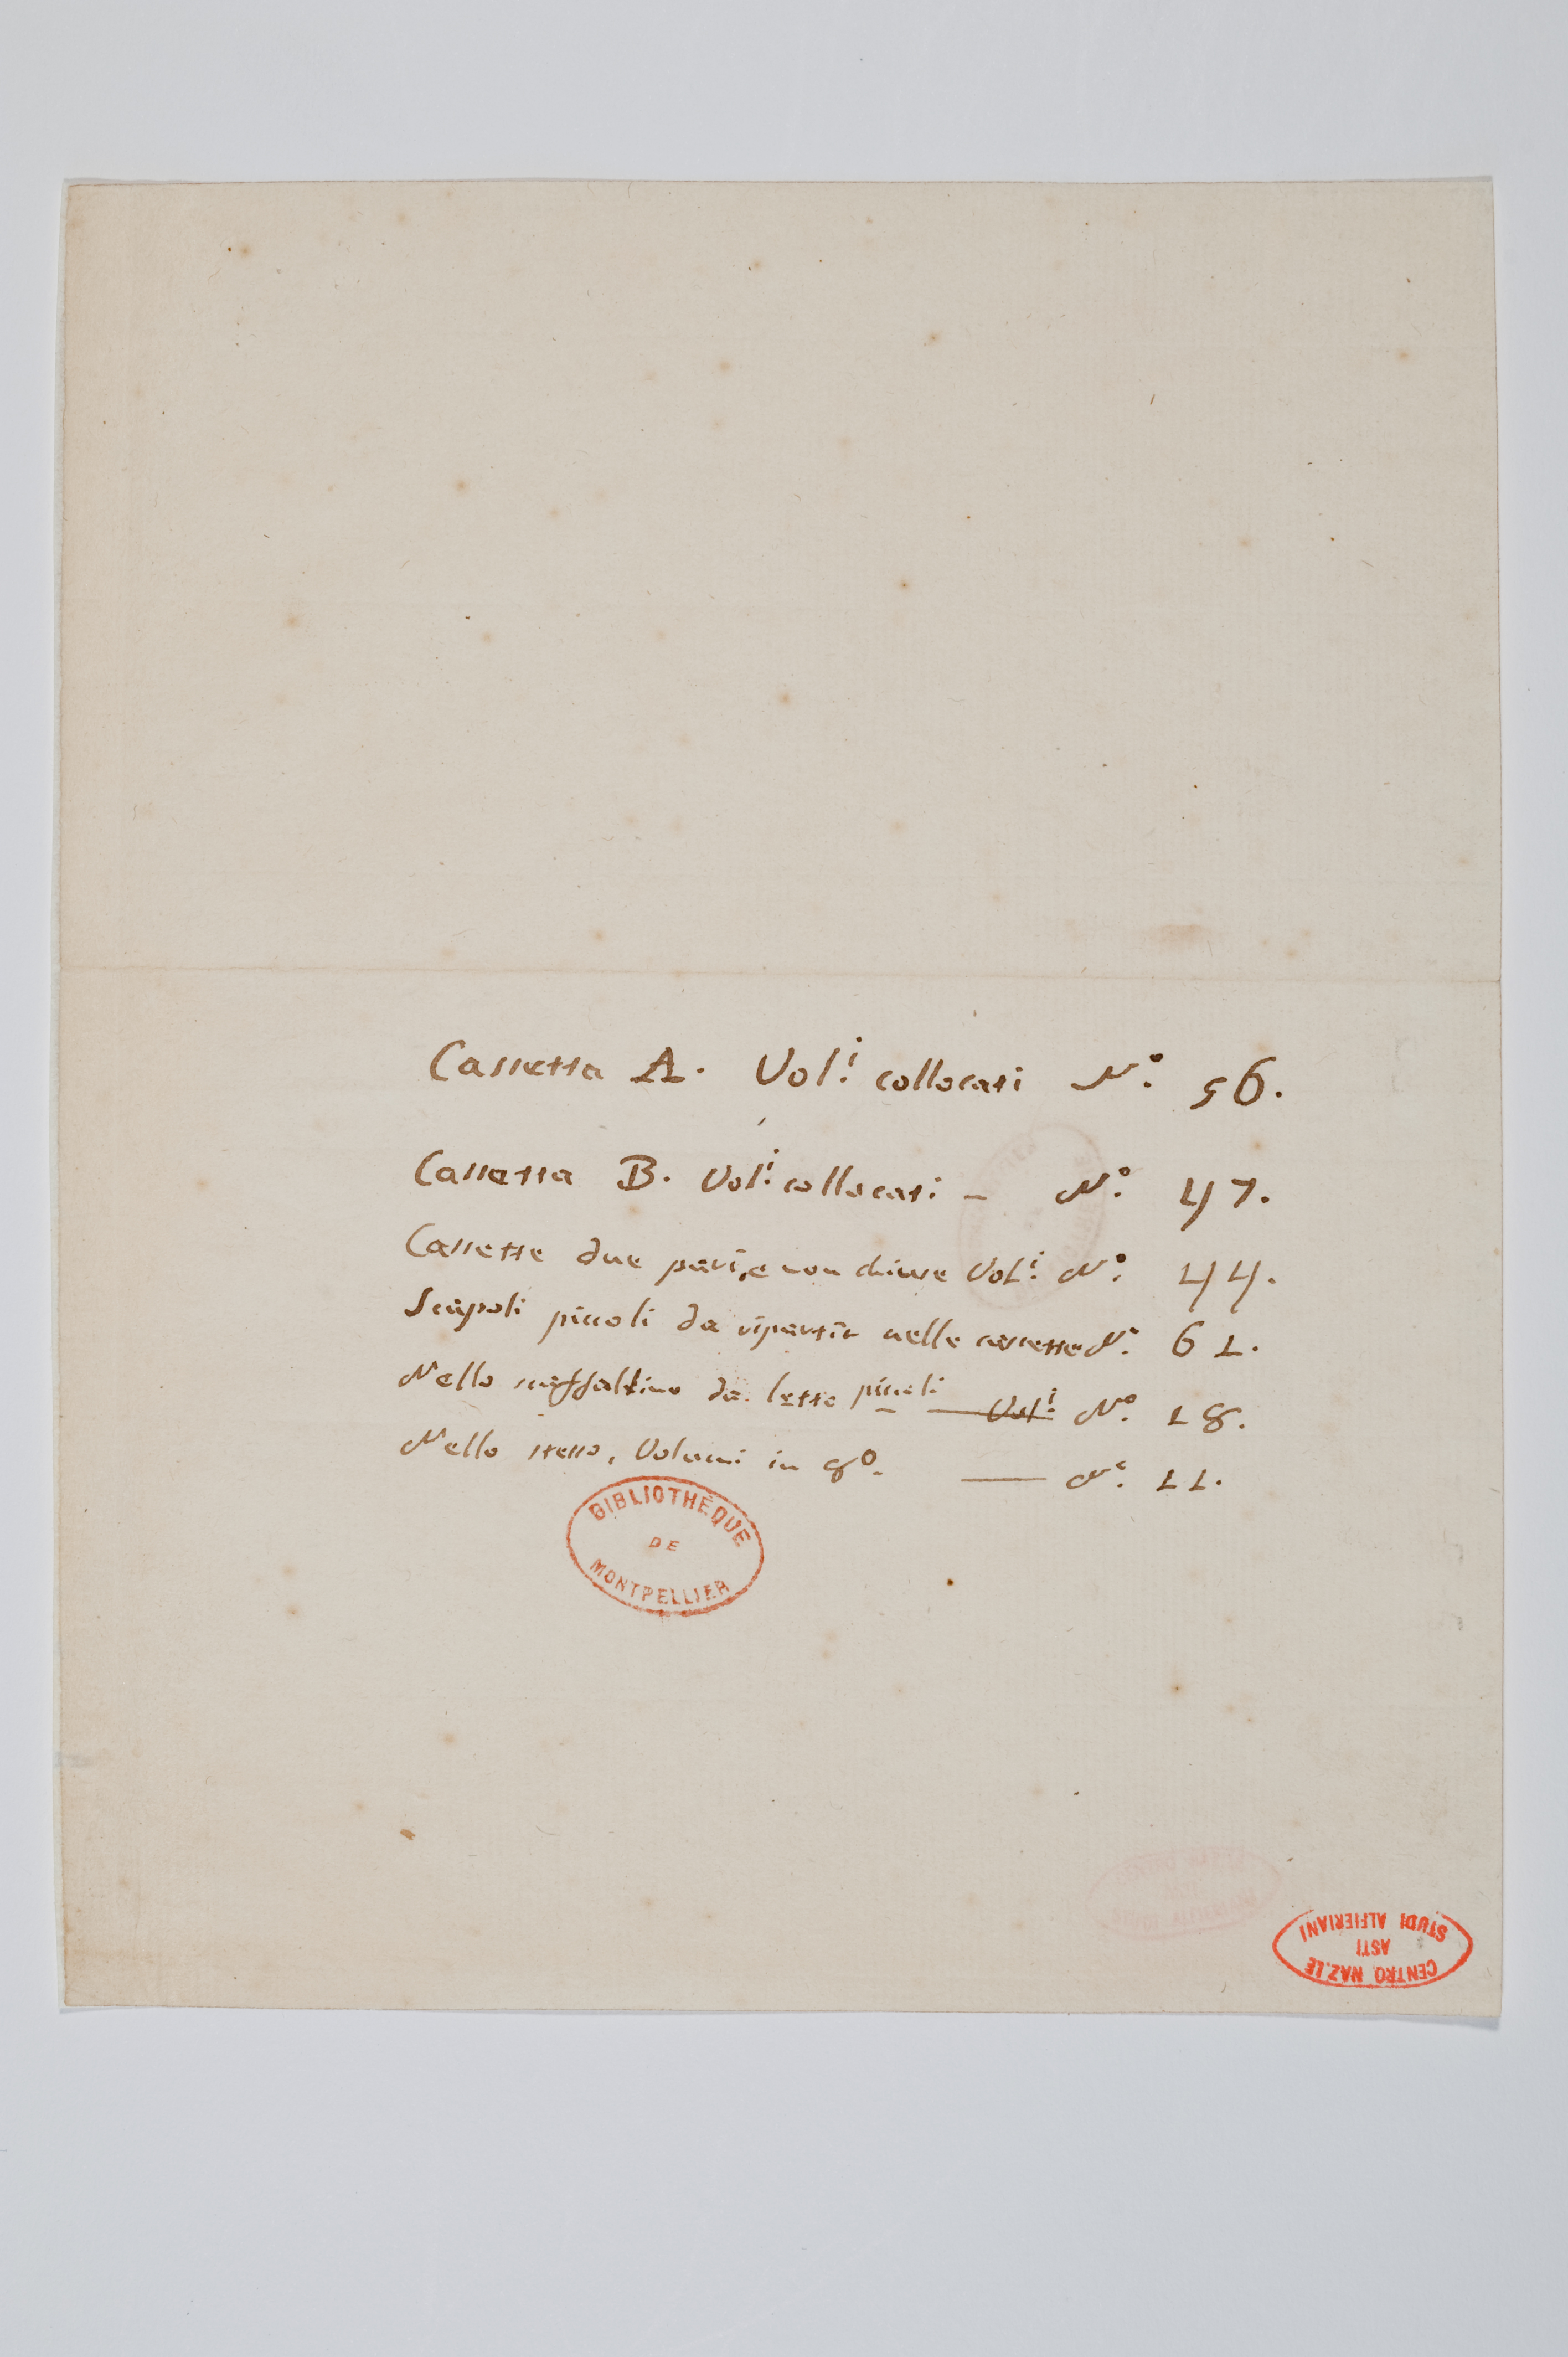 Cassetta A. Vol.i collocati N.o 56.
Cassetta B. Vol.i collocati - N.o 47.
Cassette due pari, e non chiuse Vol.i N.o 44.
Scapoli piccoli da ripartir nelle cassette N.o 61.
Nello scaffaltino da letto piccoli - Vol.i N.o 18.
Nello stesso, Volumi in 8o. — N.o 11.
BIBLIOTHÈQUE
DE
MONTPELLIER
CENTRO NAZ.LE
ASTI
STUDI ALFIERIANI